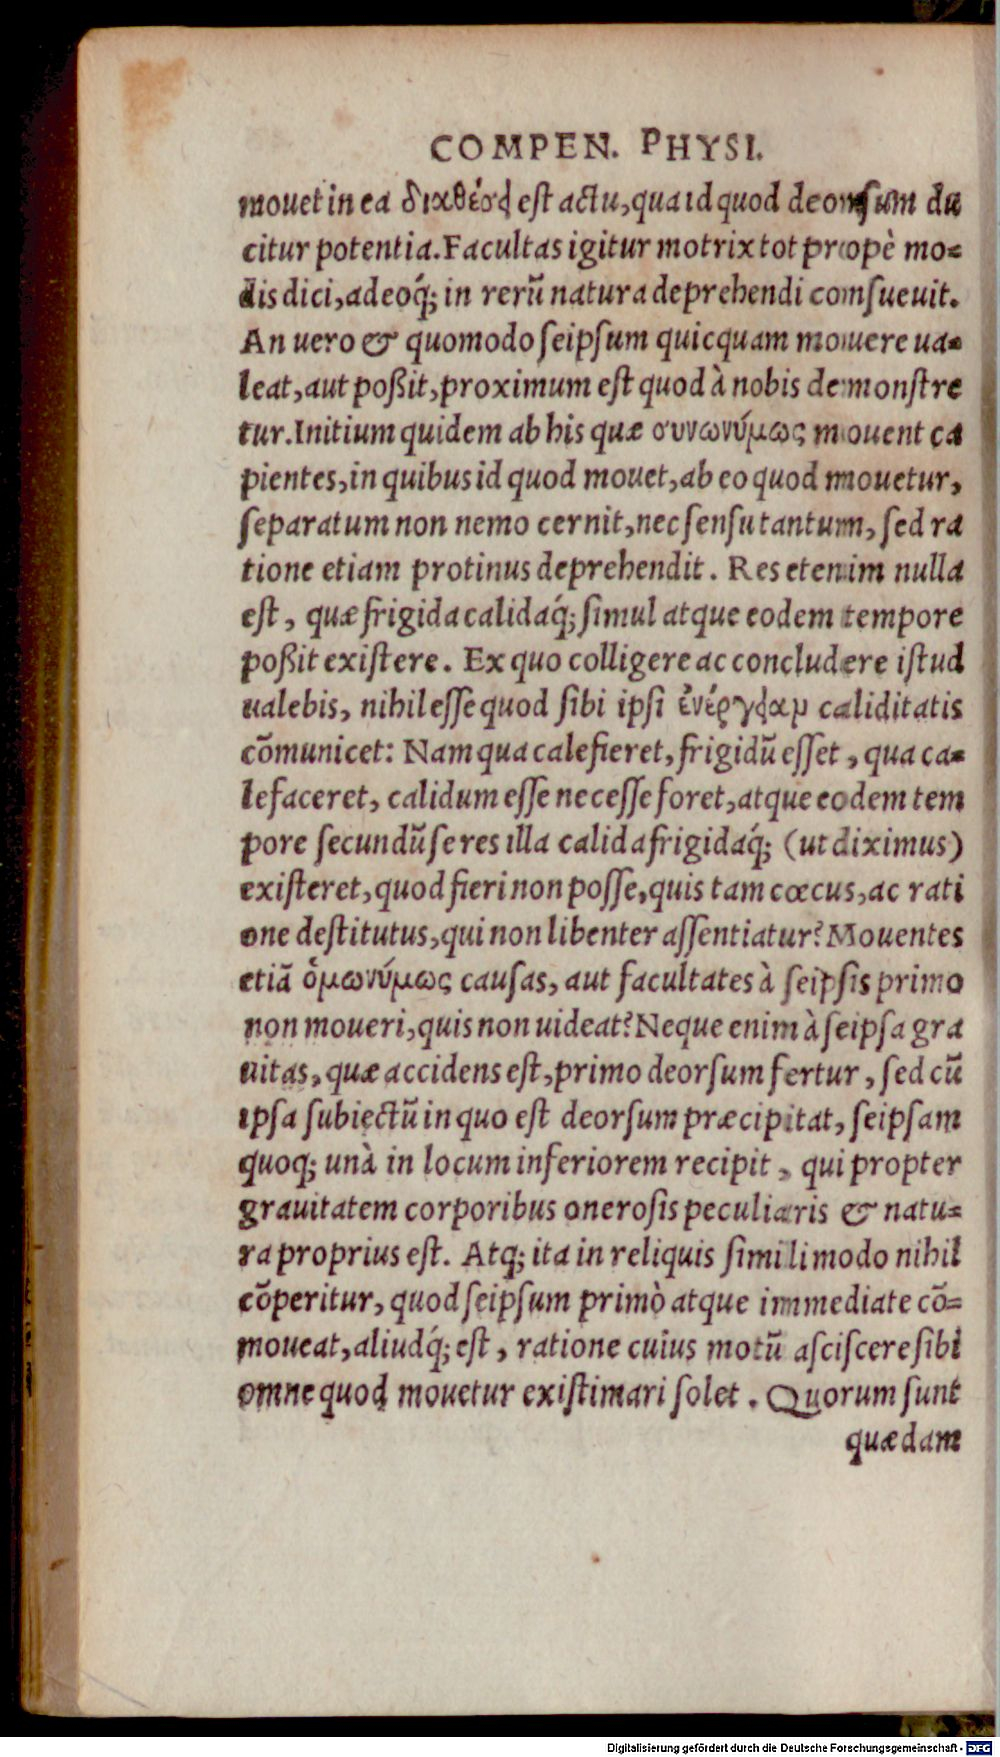 COMPEN. PHYSI.
mouet in ea διαθέσει est actu, qua id quod deorsum du
citur potentia. Facultas igitur motrix tot propè mo-
dis dici, adeoq́; in rerũ natura deprehendi consueuit.
An uero & quomodo seipsum quicquam mouere ua-
leat, aut poßit, proximum est quod à nobis demonstre
tur. Initium quidem ab his quæ συνωνύμως mouent ca
pientes, in quibus id quod mouet, ab eo quod mouetur,
separatum non nemo cernit, nec sensu tantum, sed ra
tione etiam protinus deprehendit. Res etenim nulla
est, quæ frigida calidaq́; simul atque eodem tempore
poßit existere. Ex quo colligere ac concludere istud
ualebis, nihil esse quod sibi ipsi ἐνέργειαμ caliditatis
cõmunicet: Nam qua calefieret, frigidũ esset, qua ca-
lefaceret, calidum esse necesse foret, atque eodem tem
pore secundũ se res illa calida frigidaq́; (ut diximus)
existeret, quod fieri non posse, quis tam cœcus, ac rati
one destitutus, qui non libenter assentiatur? Mouentes
etiã ὁμωνύμως causas, aut facultates à seipsis primo
non moueri, quis non uideat? Neque enim à seipsa gra
uitas, quæ accidens est, primo deorsum fertur, sed cũ
ipsa subiectũ in quo est deorsum præcipitat, seipsam
quoq; unà in locum inferiorem recipit, qui propter
grauitatem corporibus onerosis peculiaris & natu-
ra proprius est. Atq; ita in reliquis simili modo nihil
cõperitur, quod seipsum primò atque immediate cõ-
moueat, aliudq́; est, ratione cuius motũ asciscere sibi
omne quod mouetur existimari solet. Quorum sunt
quædam
Digitalisierung gefördert durch die Deutsche Forschungsgemeinschaft - DFG